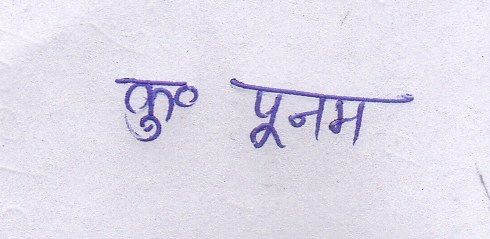 कु० पूनम